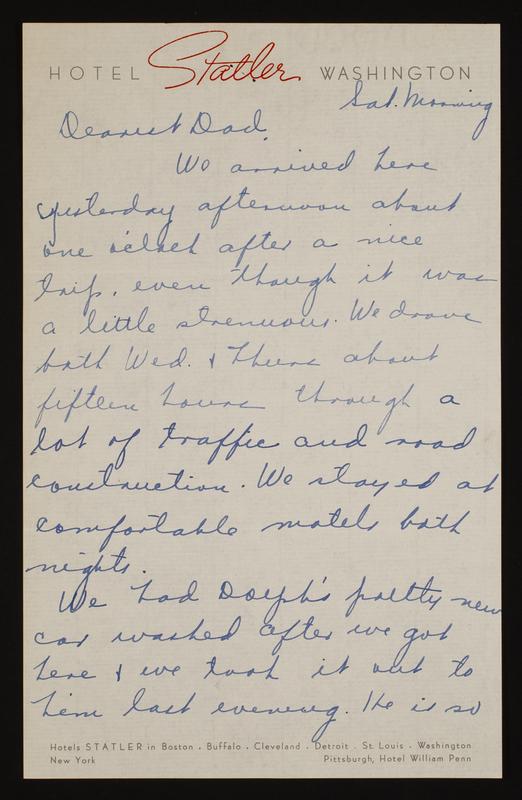 HOTEL Statler WASHINGTON
Sat. Morning
Dearest Dad,
We arrived here
yesterday afternoon about
one o'clock after a nice
trip, even though it was
a little strenuous. We drove
both Wed. & Thurs about
fifteen hours through a
lot of traffic and road
construction. We stayed at
comfortable motels both
nights.
We had Dolph's pretty new
car washed after we got
here & we took it out to
him last evening. He is so
Hotels STATLER in Boston . Buffalo . Cleveland . Detroit . St. Louis . Washington
New York Pittsburgh, Hotel William Penn